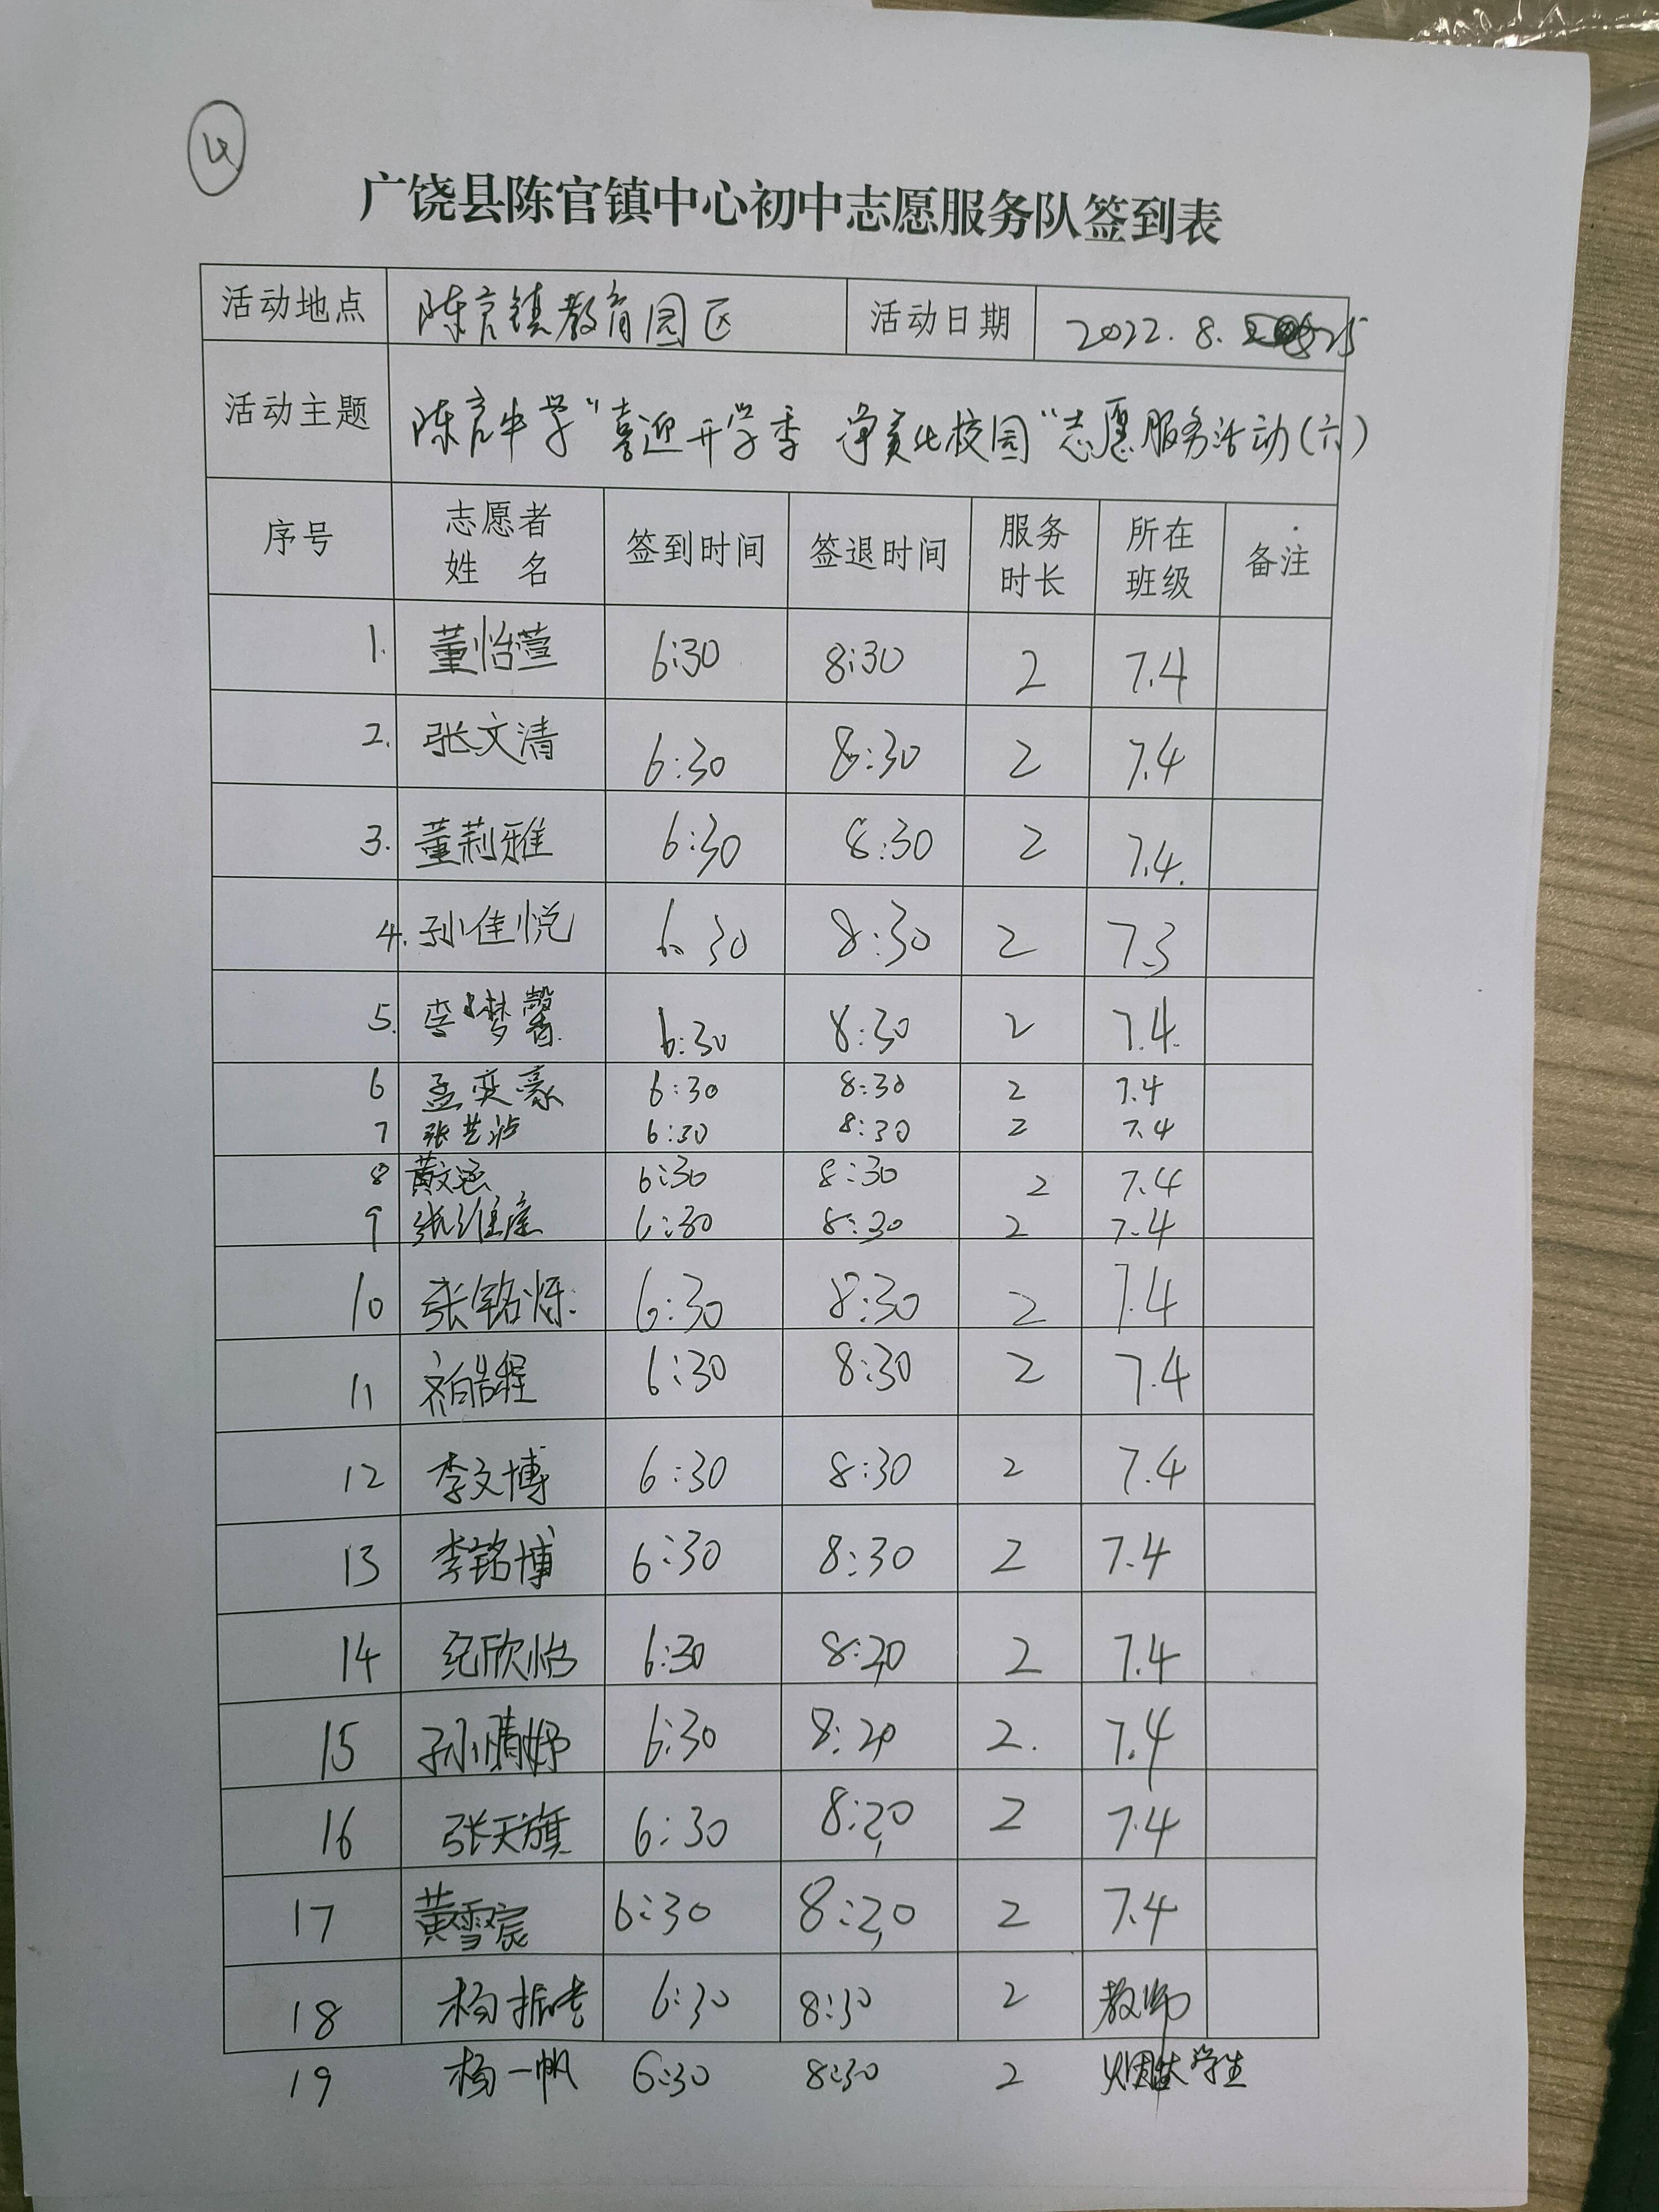 4
广饶县陈官镇中心初中志愿服务队签到表
活动地点 陈官镇教育园区 活动日期 2022.8.25
活动主题 陈官中学"喜迎开学季 净美化校园"志愿服务活动(六)
序号 志愿者姓名 签到时间 签退时间 服务时长 所在班级 备注
1. 董怡萱 6:30 8:30 2 7.4
2. 张文清 6:30 8:30 2 7.4
3. 董莉雅 6:30 8:30 2 7.4.
4. 孙佳悦 6:30 8:30 2 7.3
5. 李梦馨 6:30 8:30 2 7.4
6 孟奕豪 6:30 8:30 2 7.4
7 张艺 6:30 8:30 2 7.4
8 黄文涵 6:30 8:30 2 7.4
9 张维 6:30 8:30 2 7.4
10 张铭烁 6:30 8:30 2 7.4
11 齐皓程 6:30 8:30 2 7.4
12 李文博 6:30 8:30 2 7.4
13 李铭博 6:30 8:30 2 7.4
14 纪欣怡 6:30 8:30 2 7.4
15 孙婧妤 6:30 8:30 2. 7.4
16 张天旗 6:30 8:30 2 7.4
17 黄雪宸 6:30 8:30 2 7.4
18 杨振 6:30 8:30 2 教师
19 杨一帆 6:30 8:30 2 大学生